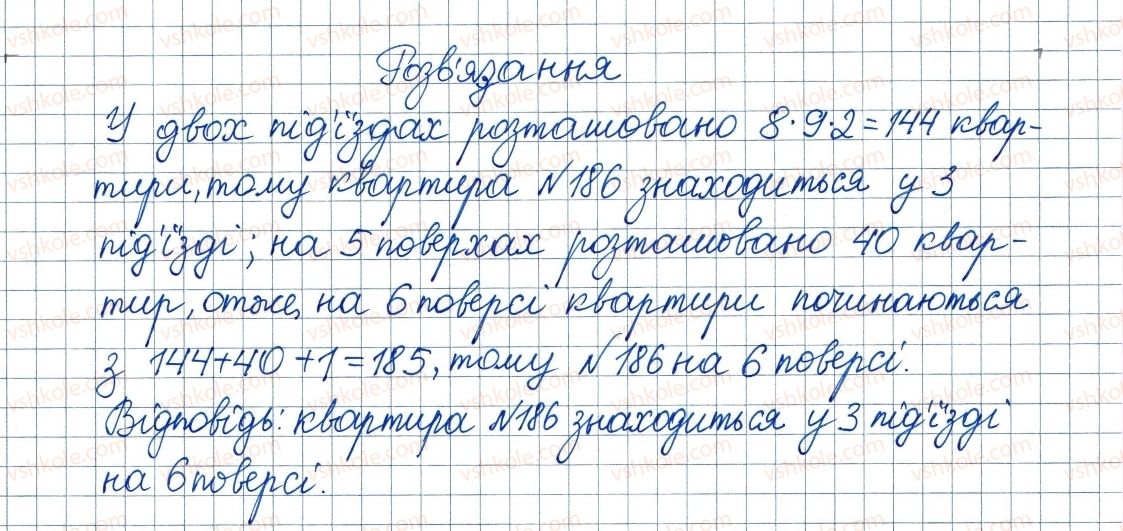 Розв'язання
У двох під'їздах розташовано 8·9·2=144 квар-
тири, тому квартира №186 знаходиться у 3
під'їзді; на 5 поверхах розташовано 40 квар-
тир, отже, на 6 поверсі квартири починаються
з 144+40+1=185, тому №186 на 6 поверсі.
Відповідь: квартира №186 знаходиться у 3 під'їзді
на 6 поверсі.